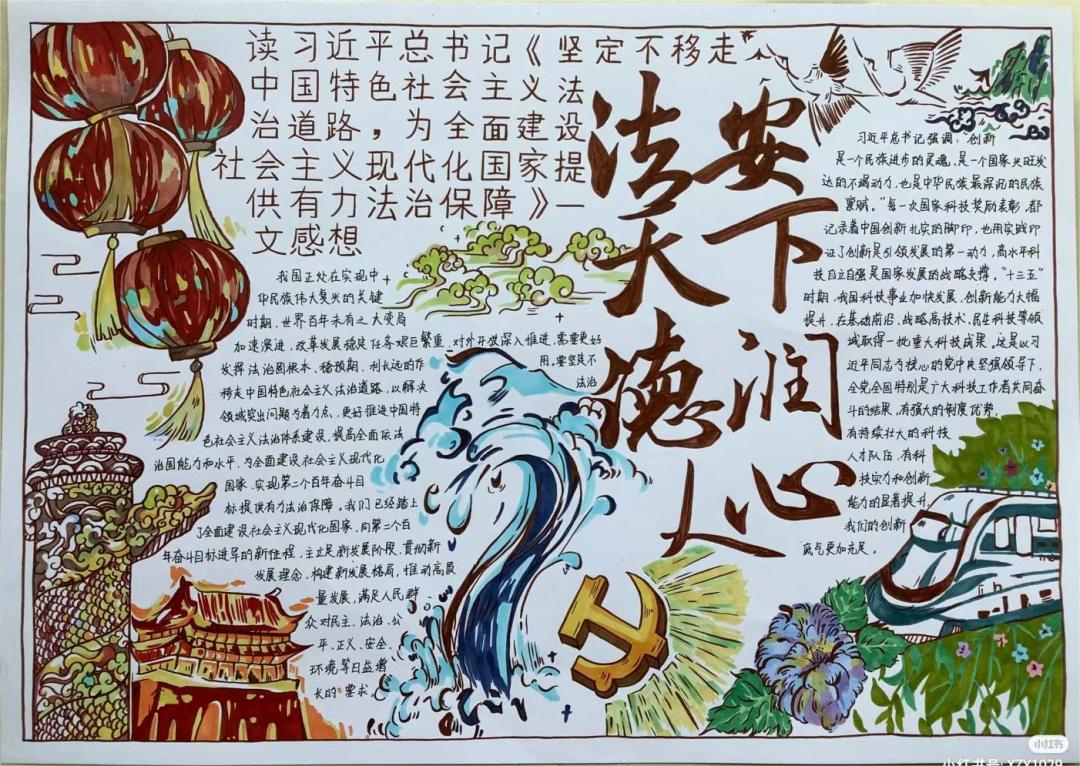 读习近平总书记《坚定不移走
中国特色社会主义法
治道路，为全面建设
社会主义现代化国家提
供有力法治保障》一
文感想
法安天下
德润人心
我国正处在实现中
华民族伟大复兴的关键
时期，世界百年未有之大变局
加速演进，改革发展稳定任务艰巨繁重，对外开放深入推进，需要更好
发挥法治固根本、稳预期、利长远的作用。要坚定不
移走中国特色社会主义法治道路，以解决法治
领域突出问题为着力点，更好推进中国特
色社会主义法治体系建设，提高全面依法
治国能力和水平，为全面建设社会主义现代化
国家、实现第二个百年奋斗目
标提供有力法治保障。我们已经踏上
了全面建设社会主义现代化国家、向第二个百
年奋斗目标进军的新征程，立足新发展阶段，贯彻新
发展理念，构建新发展格局，推动高质
量发展，满足人民群
众对民主、法治、公
平、正义、安全、
环境等日益增
长的要求，
习近平总书记强调：“创新
是一个民族进步的灵魂，是一个国家兴旺发
达的不竭动力，也是中华民族最深沉的民族
禀赋。”每一次国家科技奖励表彰，都
记录着中国创新扎实的脚印，也用实践印
证了创新是引领发展的第一动力，高水平科
技自立自强是国家发展的战略支撑。“十三五”
时期，我国科技事业加快发展，创新能力大幅
提升，在基础前沿、战略高技术、民生科技等领
域取得一批重大科技成果。这是以习
近平同志为核心的党中央坚强领导下，
全党全国特别是广大科技工作者共同奋
斗的结果，有强大的制度优势，
有持续壮大的科技
人才队伍，有科
技实力和创新
能力的显著提升，
我们的创新
底气更加充足。
小红书
小红书号: XZX1029